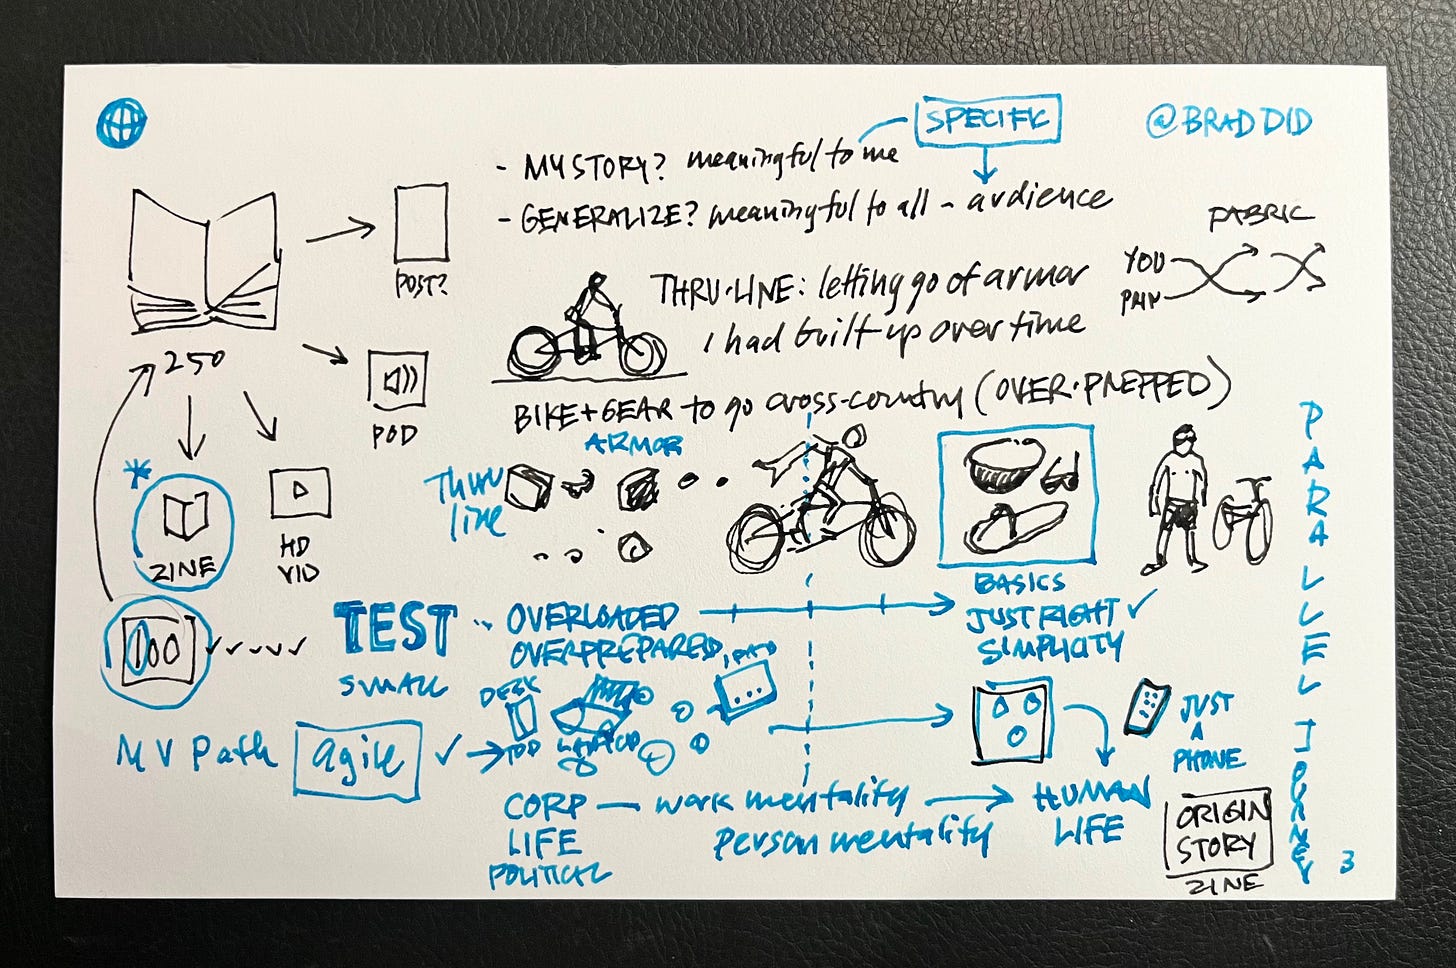 @BRADDID
SPECIFIC
- MY STORY? meaningful to me
- GENERALIZE? meaningful to all - audience
POST?
250
POD
ZINE
HD
VID
100
FABRIC
YOU
THRU-LINE: letting go of armor
I had built up over time
BIKE + GEAR to go cross-country (OVER-PREPPED)
ARMOR
THRU
LINE
BASICS
TEST
SMALL
OVERLOADED
OVERPREPARED
JUST RIGHT
SIMPLICITY
PARALLEL JOURNEY
DESK
LAPTOP
iPAD
JUST
A
PHONE
MV Path
agile
CORP
LIFE
POLITICAL
work mentality
person mentality
HUMAN
LIFE
ORIGIN
STORY
ZINE
3